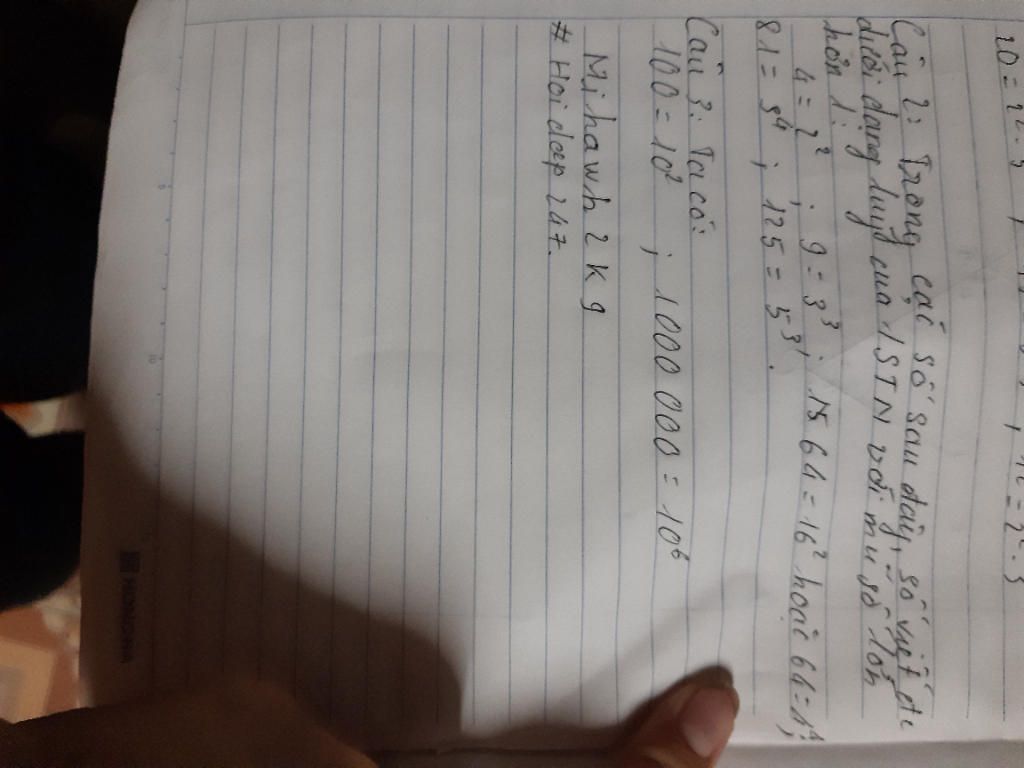 20 = 2².5
Câu 2: Trong các số sau đây, số viết đc
dưới dạng luỹ của 1 STN với mũ số lớn
hơn 1:
4 = 2² ; 9 = 3³ ; 15 64 = 16² hoặc 64 =
81 = 9⁴ ; 125 = 5³.
Câu 3: Ta có:
100 = 10² ; 1000 000 = 10⁶
Mihawh 2 k 9
# Hoi dap 247.